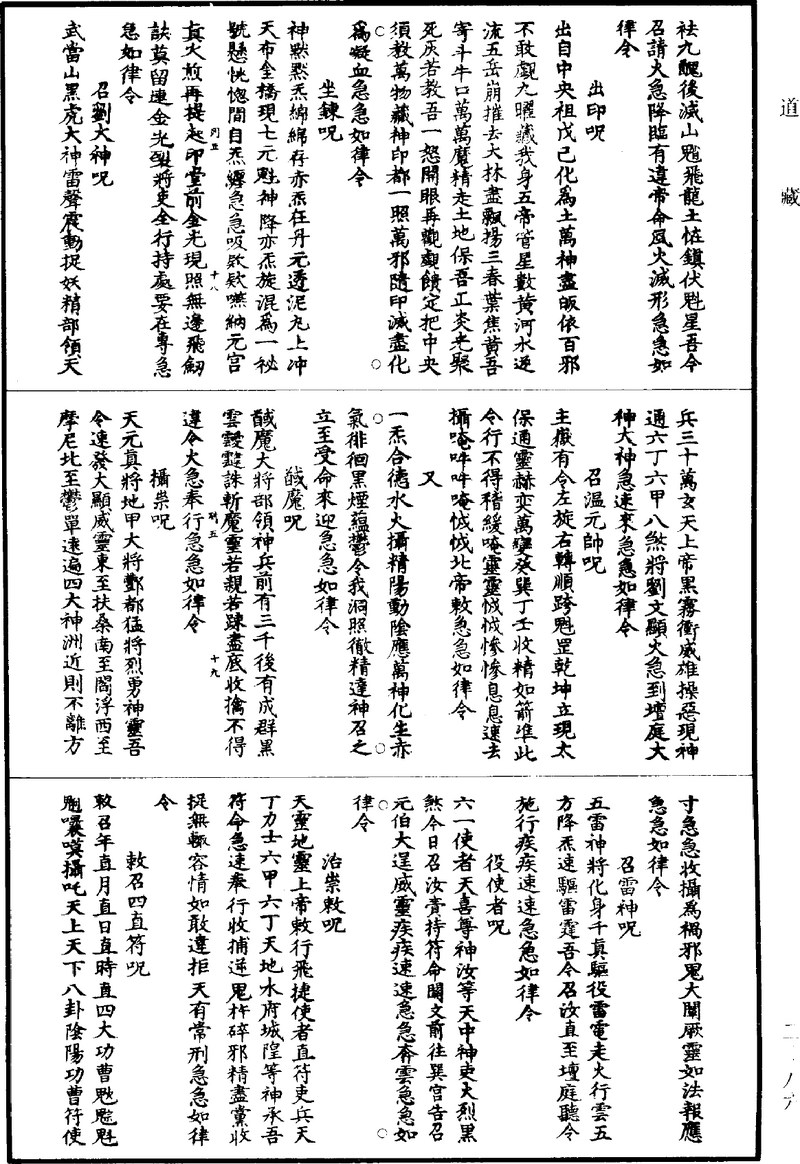 道藏
祛九醜後滅山魈飛龍土恠鎮伏尅星吾今
召請火急降臨有違帝命風火滅形急急如
律令
出印呪
出自中央祖戊己化為土萬神盡皈依百邪
不敢覷九曜藏我身五帝管星數黃河水逆
流五岳崩摧去大林盡飄揚三春葉焦黃吾
寄斗牛口萬萬魔精走土地保吾正炎光聚
死灰若教吾一怒開眼再觀覷饋定把中央
須教萬物藏神印都一照萬邪隨印滅盡化
為凝血急急如律令
坐鍊呪
神默默炁綿綿存亦炁在丹元透泥丸上冲
天布金橋現七元尅神降亦炁旋混為一祕
號懸恍惚間自炁纏急急吸欻欻嚥納元宮
真火煎再提起印堂前金光現照無邊飛劒
訣莫留連金光裂將吏全行持處要在專急
急如律令
召劉大神呪
武當山黑虎大神雷聲震動捉妖精部領天
兵三十萬玄天上帝黑霧衝威雄操惡現神
通六丁六甲八煞將劉文顯火急到壇庭大
神大神急速來急急如律令
召温元帥呪
主嶽有令左旋右轉順跨魁罡乾坤立現太
保通靈赫奕萬變癸巽丁壬收精如箭準此
令行不得稽緩唵靈靈悈悈慘慘息息速去
攝唵吽吽唵悈悈北帝敕急急如律令
又
一炁合德水火攝精陽動陰應萬神化生亦
氣徘徊黑煙蘊鬱令我洞照徹精達神召之
立至受命來迎急急如律令
馘魔呪
馘魔大將部領神兵前有三千後有成群黑
雲靉靆誅斬魔靈若親若踈盡底收擒不得
違令火急奉行急急如律令
攝祟呪
天元真將地甲大將酆都猛將烈勇神靈吾
令速發大顯威靈東至扶桑南至閻浮西至
摩尼北至鬱單遠遍四大神洲近則不離方
寸急急收攝為禍邪鬼大闡厥靈如法報應
急急如律令
召雷神呪
五雷神將化身千真驅役雷電走火行雲五
方降炁速驅雷霆吾令召汝直至壇庭聽令
施行疾疾速速急急如律令
役使者呪
六一使者天喜尊神汝等天中神吏大烈黑
煞今日召汝賫持符命關文前往巽宮告召
元伯大逞威靈疾疾速速急急奔雲急急如
律令
治祟敕呪
天靈地靈上帝敕行飛捷使者直符吏兵天
丁力士六甲六丁天地水府城隍等神承吾
符命急速奉行收捕逆鬼杵碎邪精盡黨收
捉無輒容情如敢違拒天有常刑急急如律
令
敕召四直符呪
敕召年直月直日直時直四大功曹
攝吒天上天下八卦陰陽功曹符使